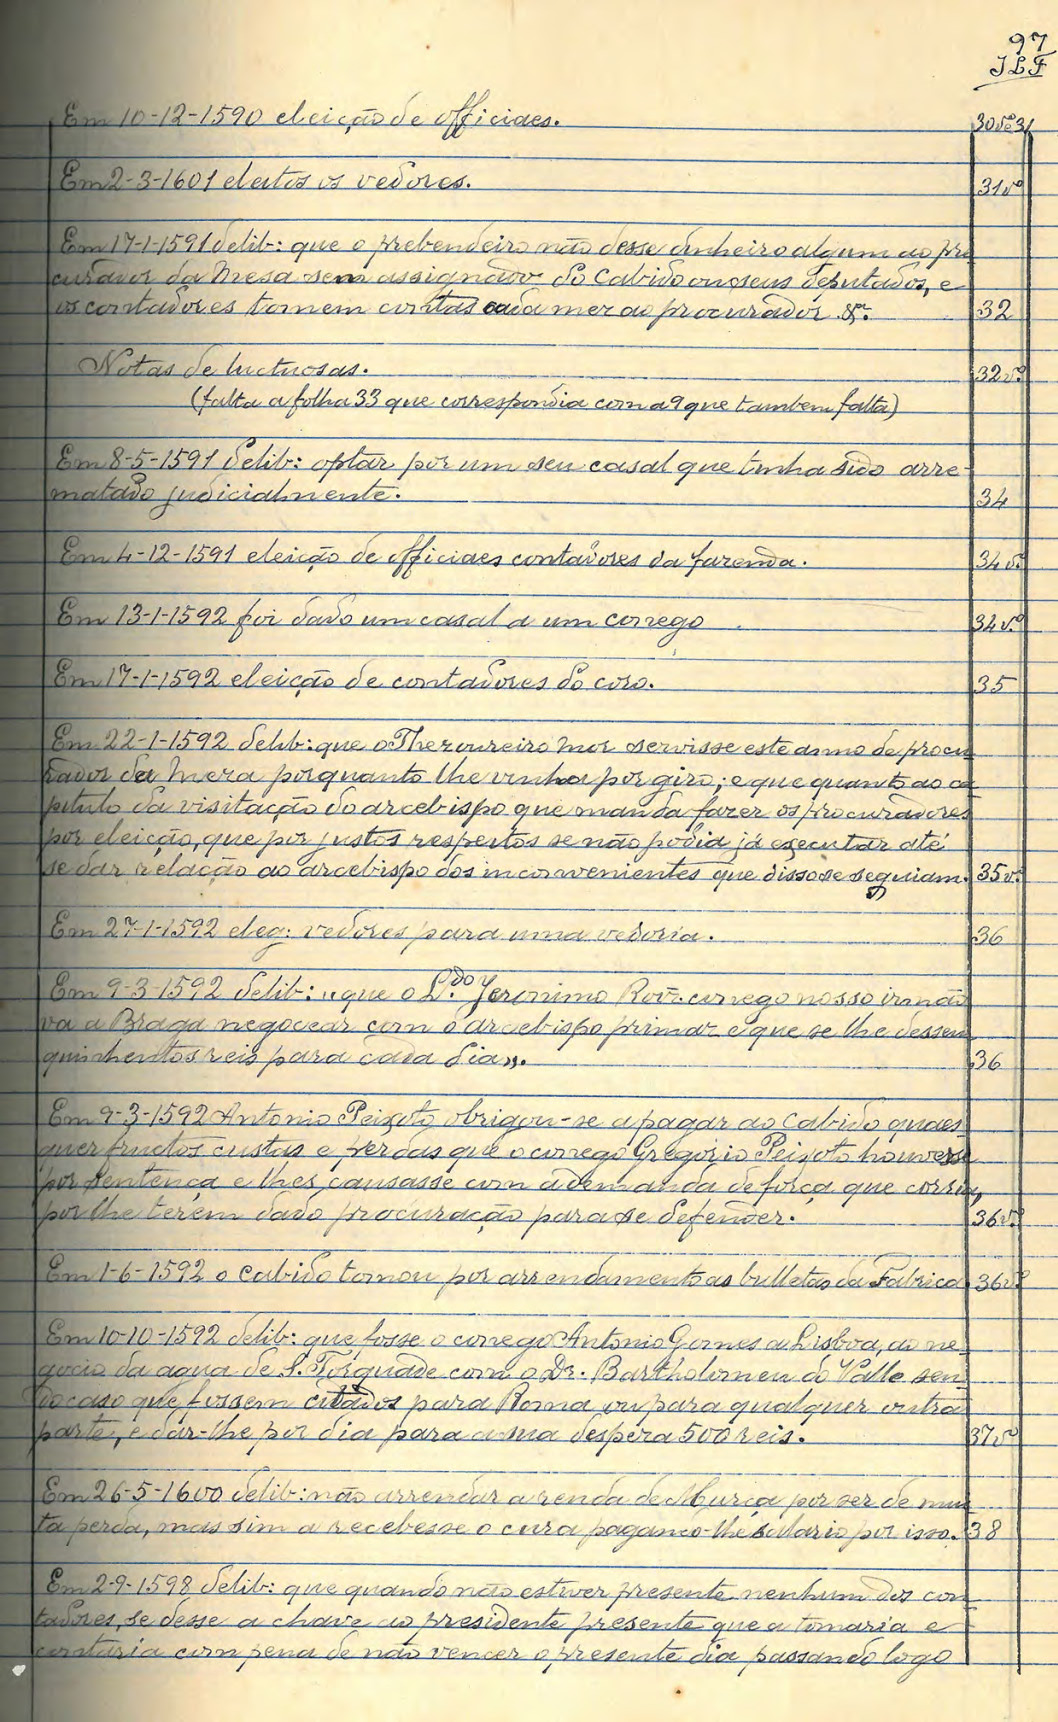 97
JLF
Em 10-12-1590 eleição de officiaes. 30vº31
Em 2-3-1601 eleitos os vedores. 31vº
Em 17-1-1591 delib: que o prebendeiro não desse dinheiro algum ao pro
curador da Mesa sem assignado do Cabido ou seus deputados, e
os contadores tomem contas cada mez ao procurador &. 32
Notas de luctuosas. 32vº
(falta a folha 33 que correspondia com a 9 que tambem falta)
Em 8-5-1591 delib: optar por um seu casal que tinha sido arre-
matado judicialmente. 34
Em 4-12-1591 eleição de officiaes contadores da fazenda. 34vº
Em 13-1-1592 foi dado um casal a um conego 34vº
Em 17-1-1592 eleição de contadores do coro. 35
Em 22-1-1592 delib: que o Thezoureiro Mor servisse este anno de procu
rador da Meza porquanto lhe vinha por giro; e que quanto ao ca
pitulo da visitação do arcebispo que manda fazer os procuradores
por eleição, que por justos respeitos se não podia já executar até
se dar relação ao arcebispo dos inconvenientes que disso se seguiam. 35vº
Em 27-1-1592 eleg: vedores para uma vedoria. 36
Em 9-3-1592 delib: "que o L.do Jeronimo Roiz. conego nosso irmão
va a Braga negocear com o arcebispo primaz e que se lhe dessem
quinhentos reis para cada dia". 36
Em 9-3-1592 Antonio Peixoto obrigou-se a pagar ao Cabido quaes-
quer fructos custas e perdas que o conego Gregorio Peixoto houvesse
por sentença e lhes causasse com a demanda de força que corria,
por lhe terem dado procuração para se defender. 36vº
Em 1-6-1592 o Cabido tomou por arrendamento as bulletas da Fabrica 36vº
Em 10-10-1592 delib: que fosse o conego Antonio Gomes a Lisboa, ao ne-
gocio da agua de S. Torquade com o Dr. Bartholomeu do Valle sen-
do caso que fossem citados para Roma ou para qualquer outra
parte, e dar-lhe por dia para a sua despeza 500 reis. 37vº
Em 26-5-1600 delib: não arrendar a renda de Murça por ser de mui
ta perda, mas sim a recebesse o cura pagando-lhe salario por isso. 38
Em 2-9-1598 delib: que quando não estiver presente nenhum dos con-
tadores, se desse a chave ao presidente presente que a tomaria e
contaria com pena de não vencer o presente dia passando logo